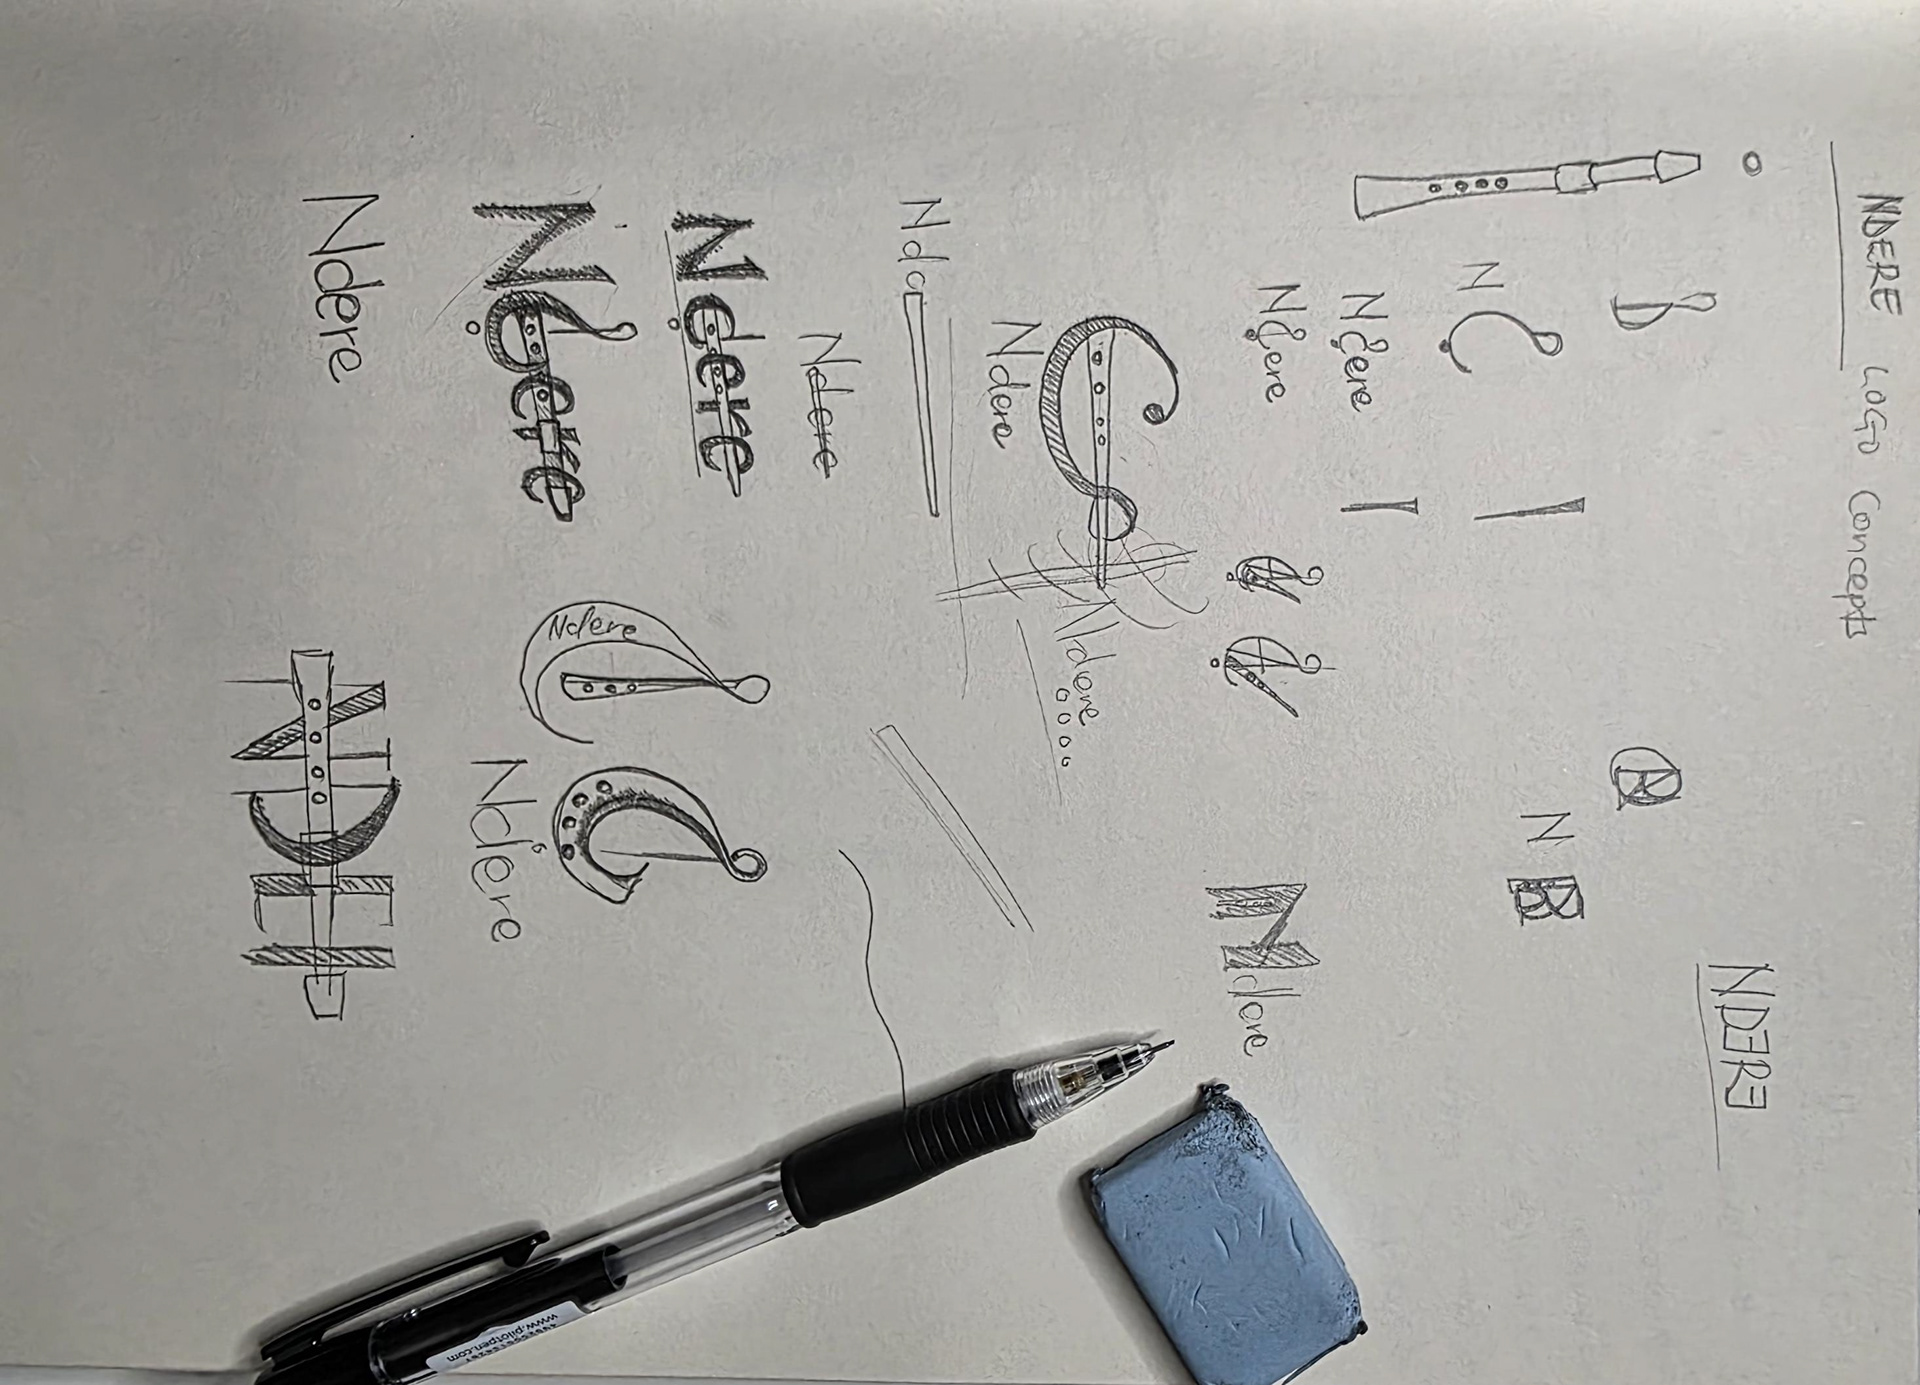 NDERE LOGO Concepts
N
Ndere
Ndere
N
N
NDERE
Ndere
Ndere
Ndere
Nd
Ndere
Ndere
Ndere
Ndere
Ndere
Ndere
NDE
www.pilotpen.com